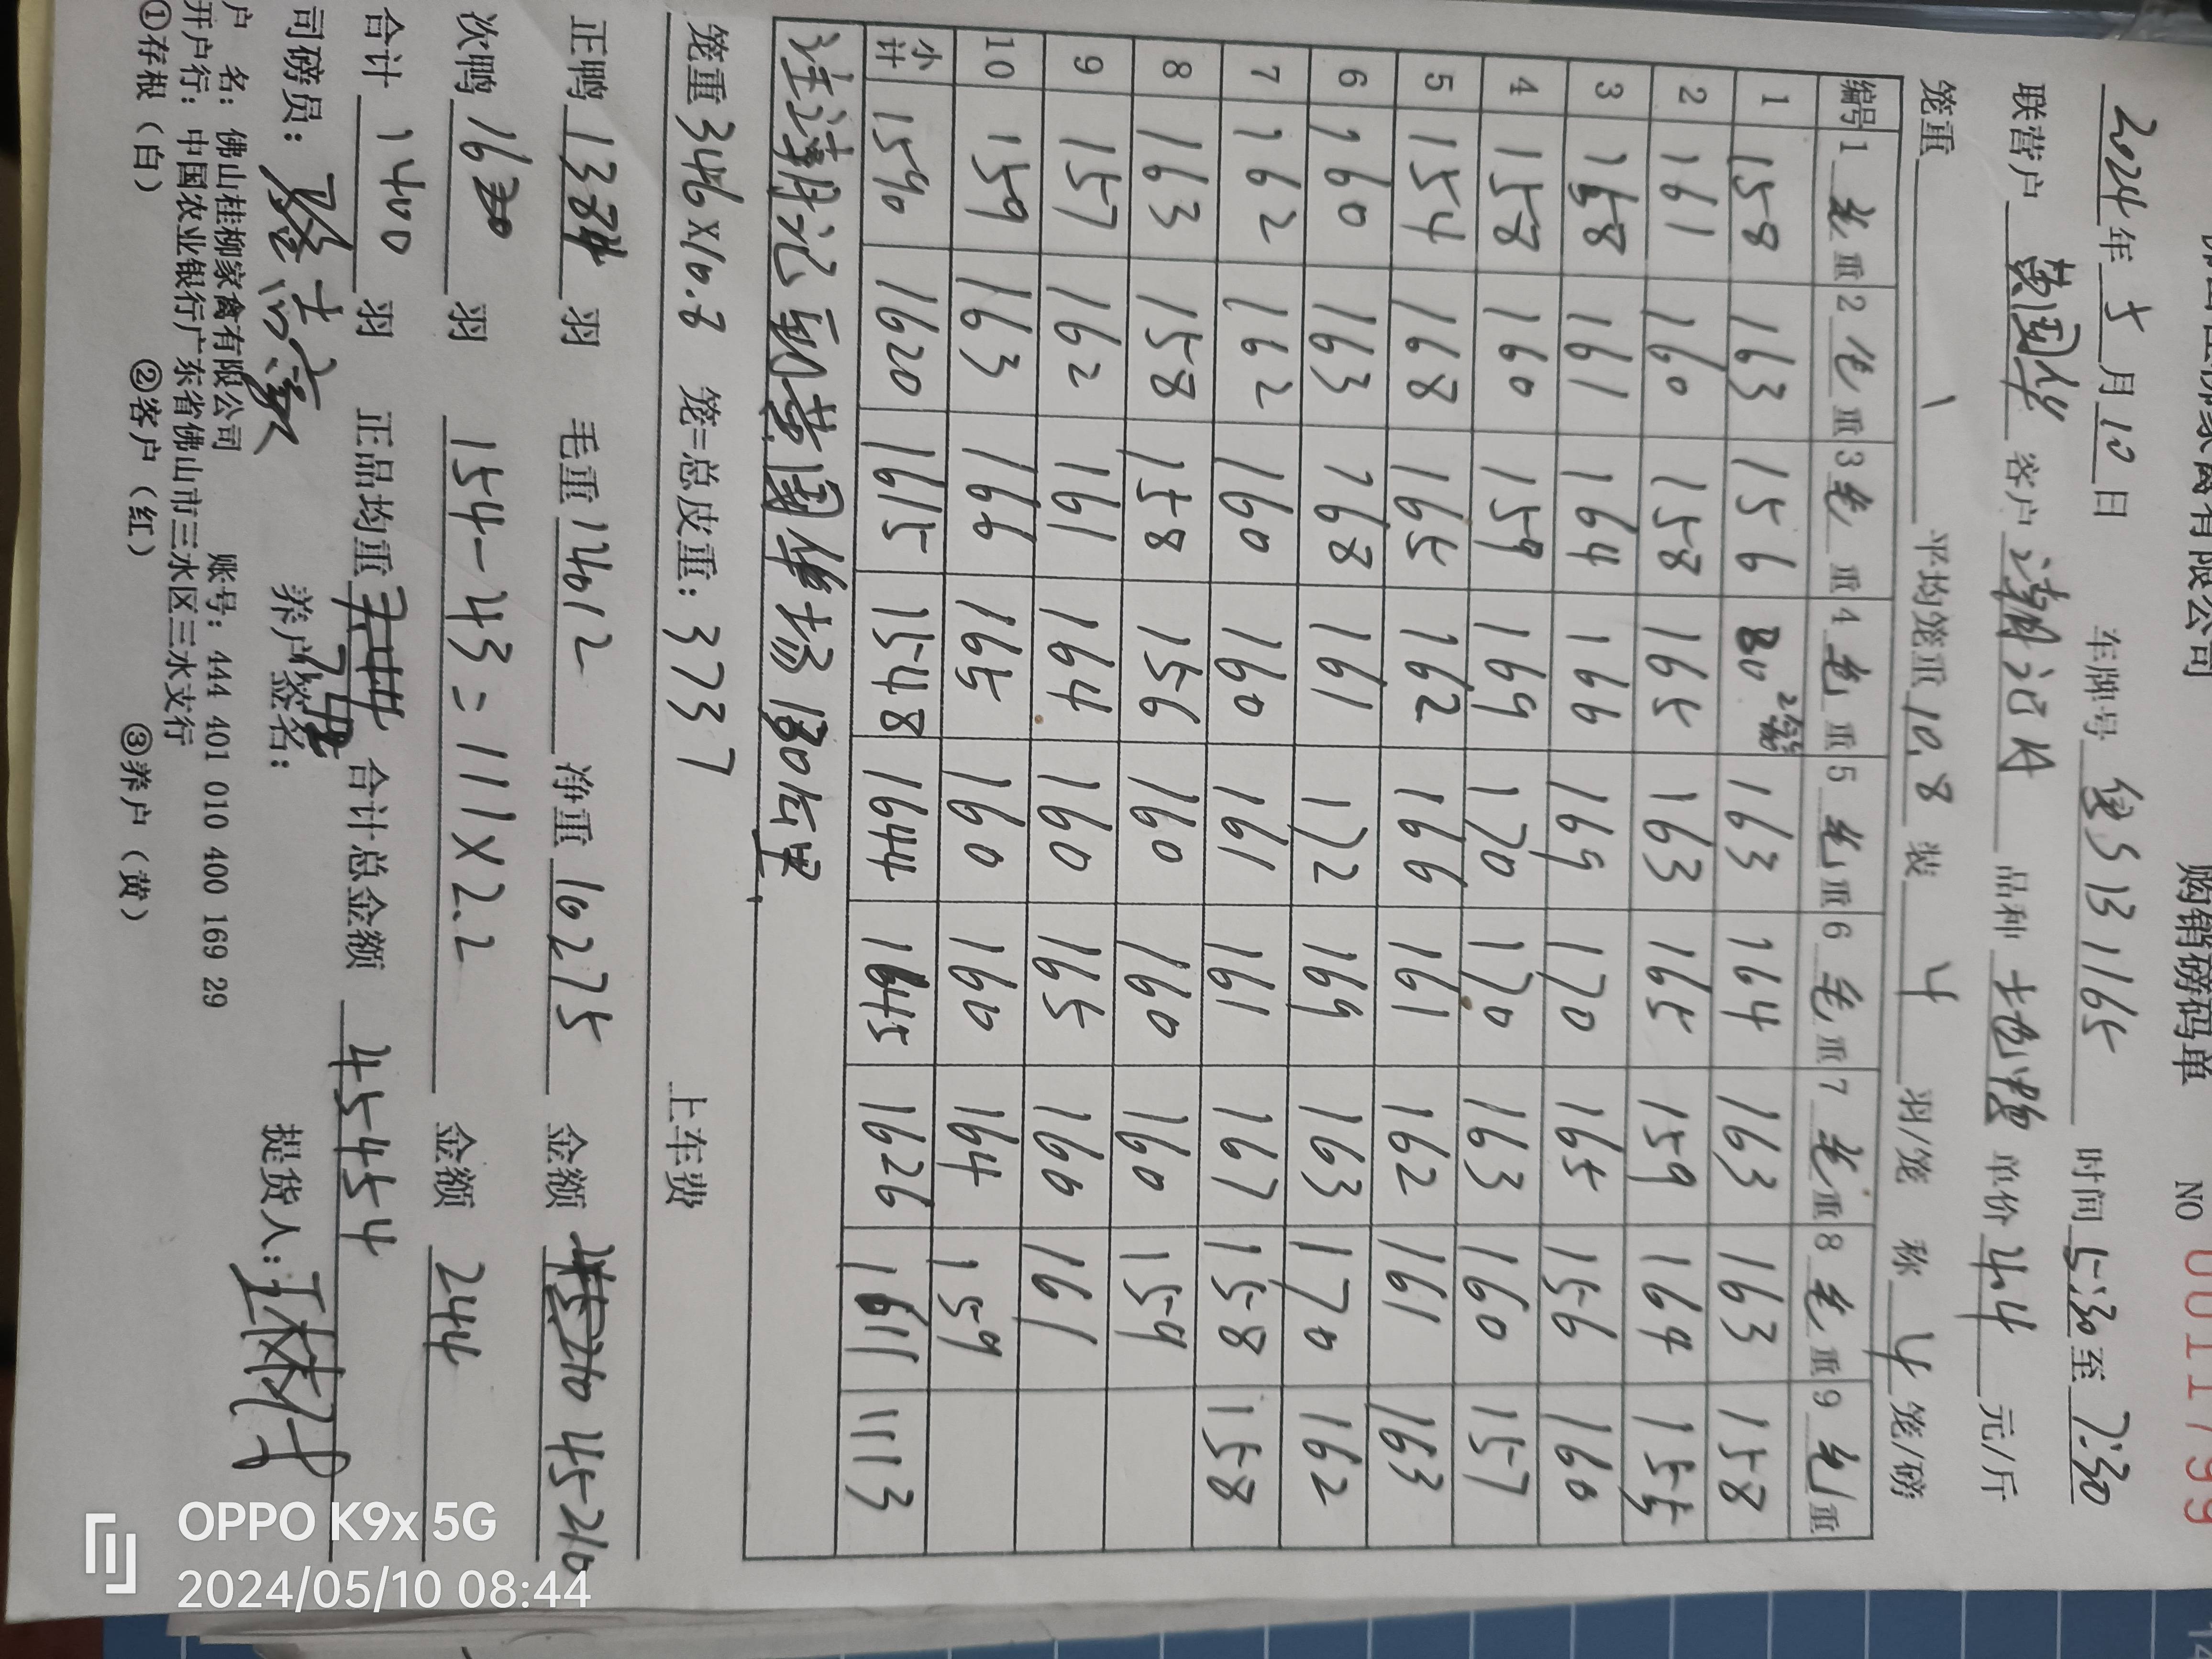 购销磅码单 NO 0011799
2024年5月10日 车牌号 1165 时间5:30至7:30
联营户 黄国华 客户 品种 单价4.4元/斤
笼重 平均笼重10.8 装4羽/笼 称4笼/磅
编号 1毛重 2毛重 3毛重 4毛重 5毛重 6毛重 7毛重 8毛重 9毛重
1 158 163 156 80 2笼 163 164 163 163 158
2 161 160 158 165 163 165 159 164 155
3 158 161 164 166 169 170 165 156 160
4 158 160 159 169 170 170 163 160 157
5 154 168 165 162 166 161 162 161 163
6 160 163 168 161 172 169 163 170 162
7 162 162 160 160 161 161 167 158 158
8 163 158 158 156 160 160 160 159
9 157 162 161 164 160 165 160 161
10 159 163 166 165 160 160 164 159
小计 1590 1620 1615 1548 1644 1645 1626 1611 1113
笼重346×10.8 笼=总皮重:3737 上车费
正鸭1384羽 毛重14012 净重10275 金额 45210
次鸭16羽 154-43=111×2.2 金额 244
合计1400羽 正品均重 合计总金额 45454
司磅员: 养户签名: 提货人:
户 名:佛山桂柳家禽有限公司 账号:444 401 010 400 169 29
开户行:中国农业银行广东省佛山市三水区三水支行
①存根(白) ②客户(红) ③养户(黄)
OPPO K9x 5G
2024/05/10 08:44